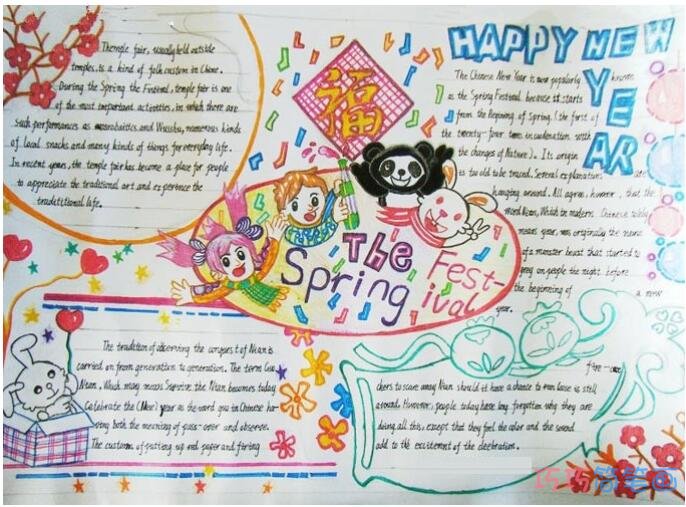 Themple fair, usually held outside
temples, is a kind of folk custom in China.
During the Spring the Festival, temple fair is one
of the most important activities, in which there are
such performances as acrobatics and Wushu, numerous kinds
of local snacks and many kinds of things for everyday life.
In recent years, the temple fair has become a place for people
to appreciate the traditional art and experience the
tradetitional life.
福
The
Spring
Fest-
ival
HAPPY NEW
YEAR
The Chinese New Year is now popularly known
as the Spring Festival because it starts
from the Begining of Spring (the first of
the twenty-four terms in coodination with
the changes of Nature). Its origin
is too old to be traced. Several explanations are
hanging around. All agree, however, that the
word Nian, Which in modern Chinese
means year, was originally the name
of a monster beast that started to
prey on people the night before
the beginning of a new
year.
The tradition of observing the conquest of Nian is
carried on from generation to generation. The term Guo
Nian, Which may mean Survive the Nian becomes today
Celebrate the (New) year as the word guo in Chinese ha-
ving both the meaning of pass-over and observe.
The custom of putting up red paper and firing
fire-crac
kers to scare away Nian should it have a chance to run loose is still
around. However, people today have long forgotten why they are
doing all this, except that they feel the color and the sound
add to the excitement of the celebration.
巧巧简笔画